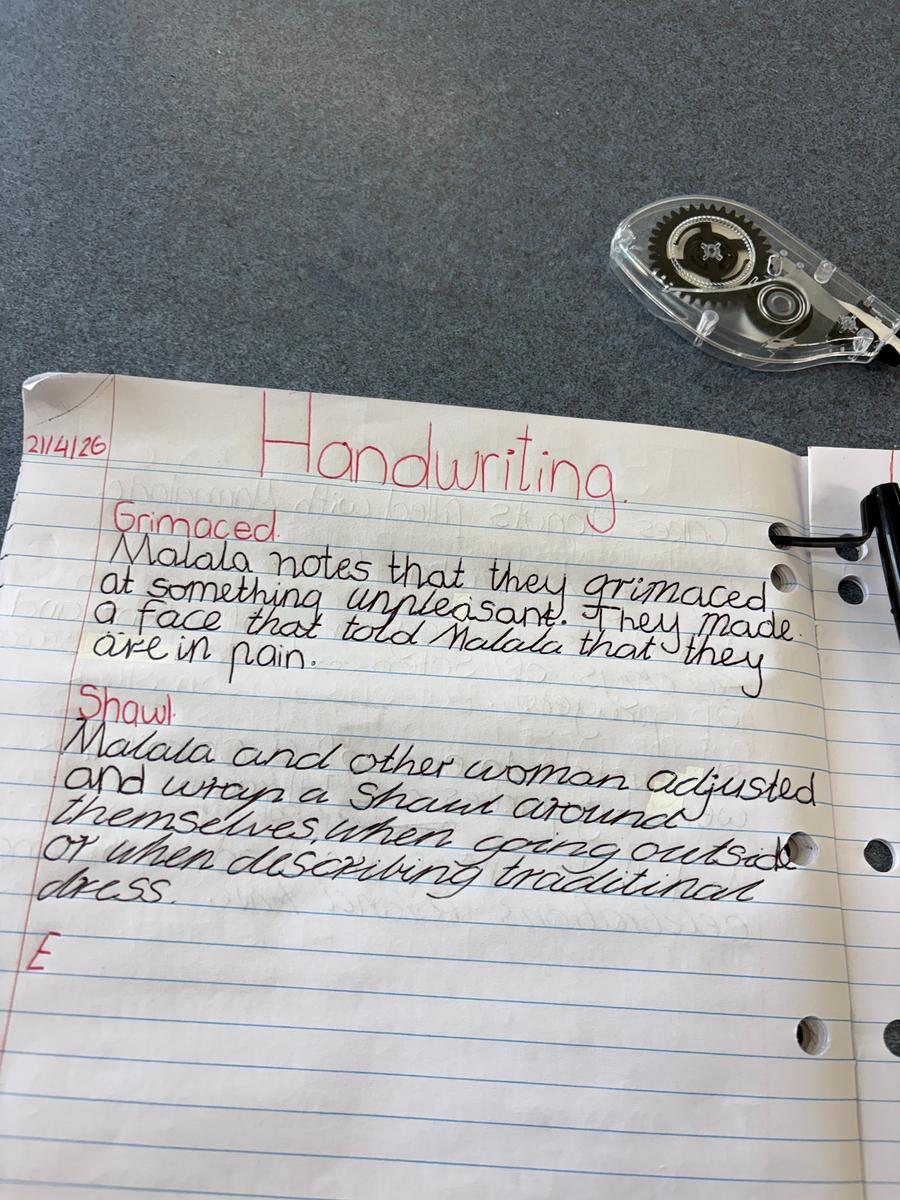 21/4/26
Handwriting.
Grimaced.
Malala notes that they grimaced
at something unpleasant. They made
a face that told Malala that they
are in pain.
Shawl.
Malala and other woman adjusted
and wrap a Shawl around
themselves, when going outside
or when describing traditinal
dress.
E